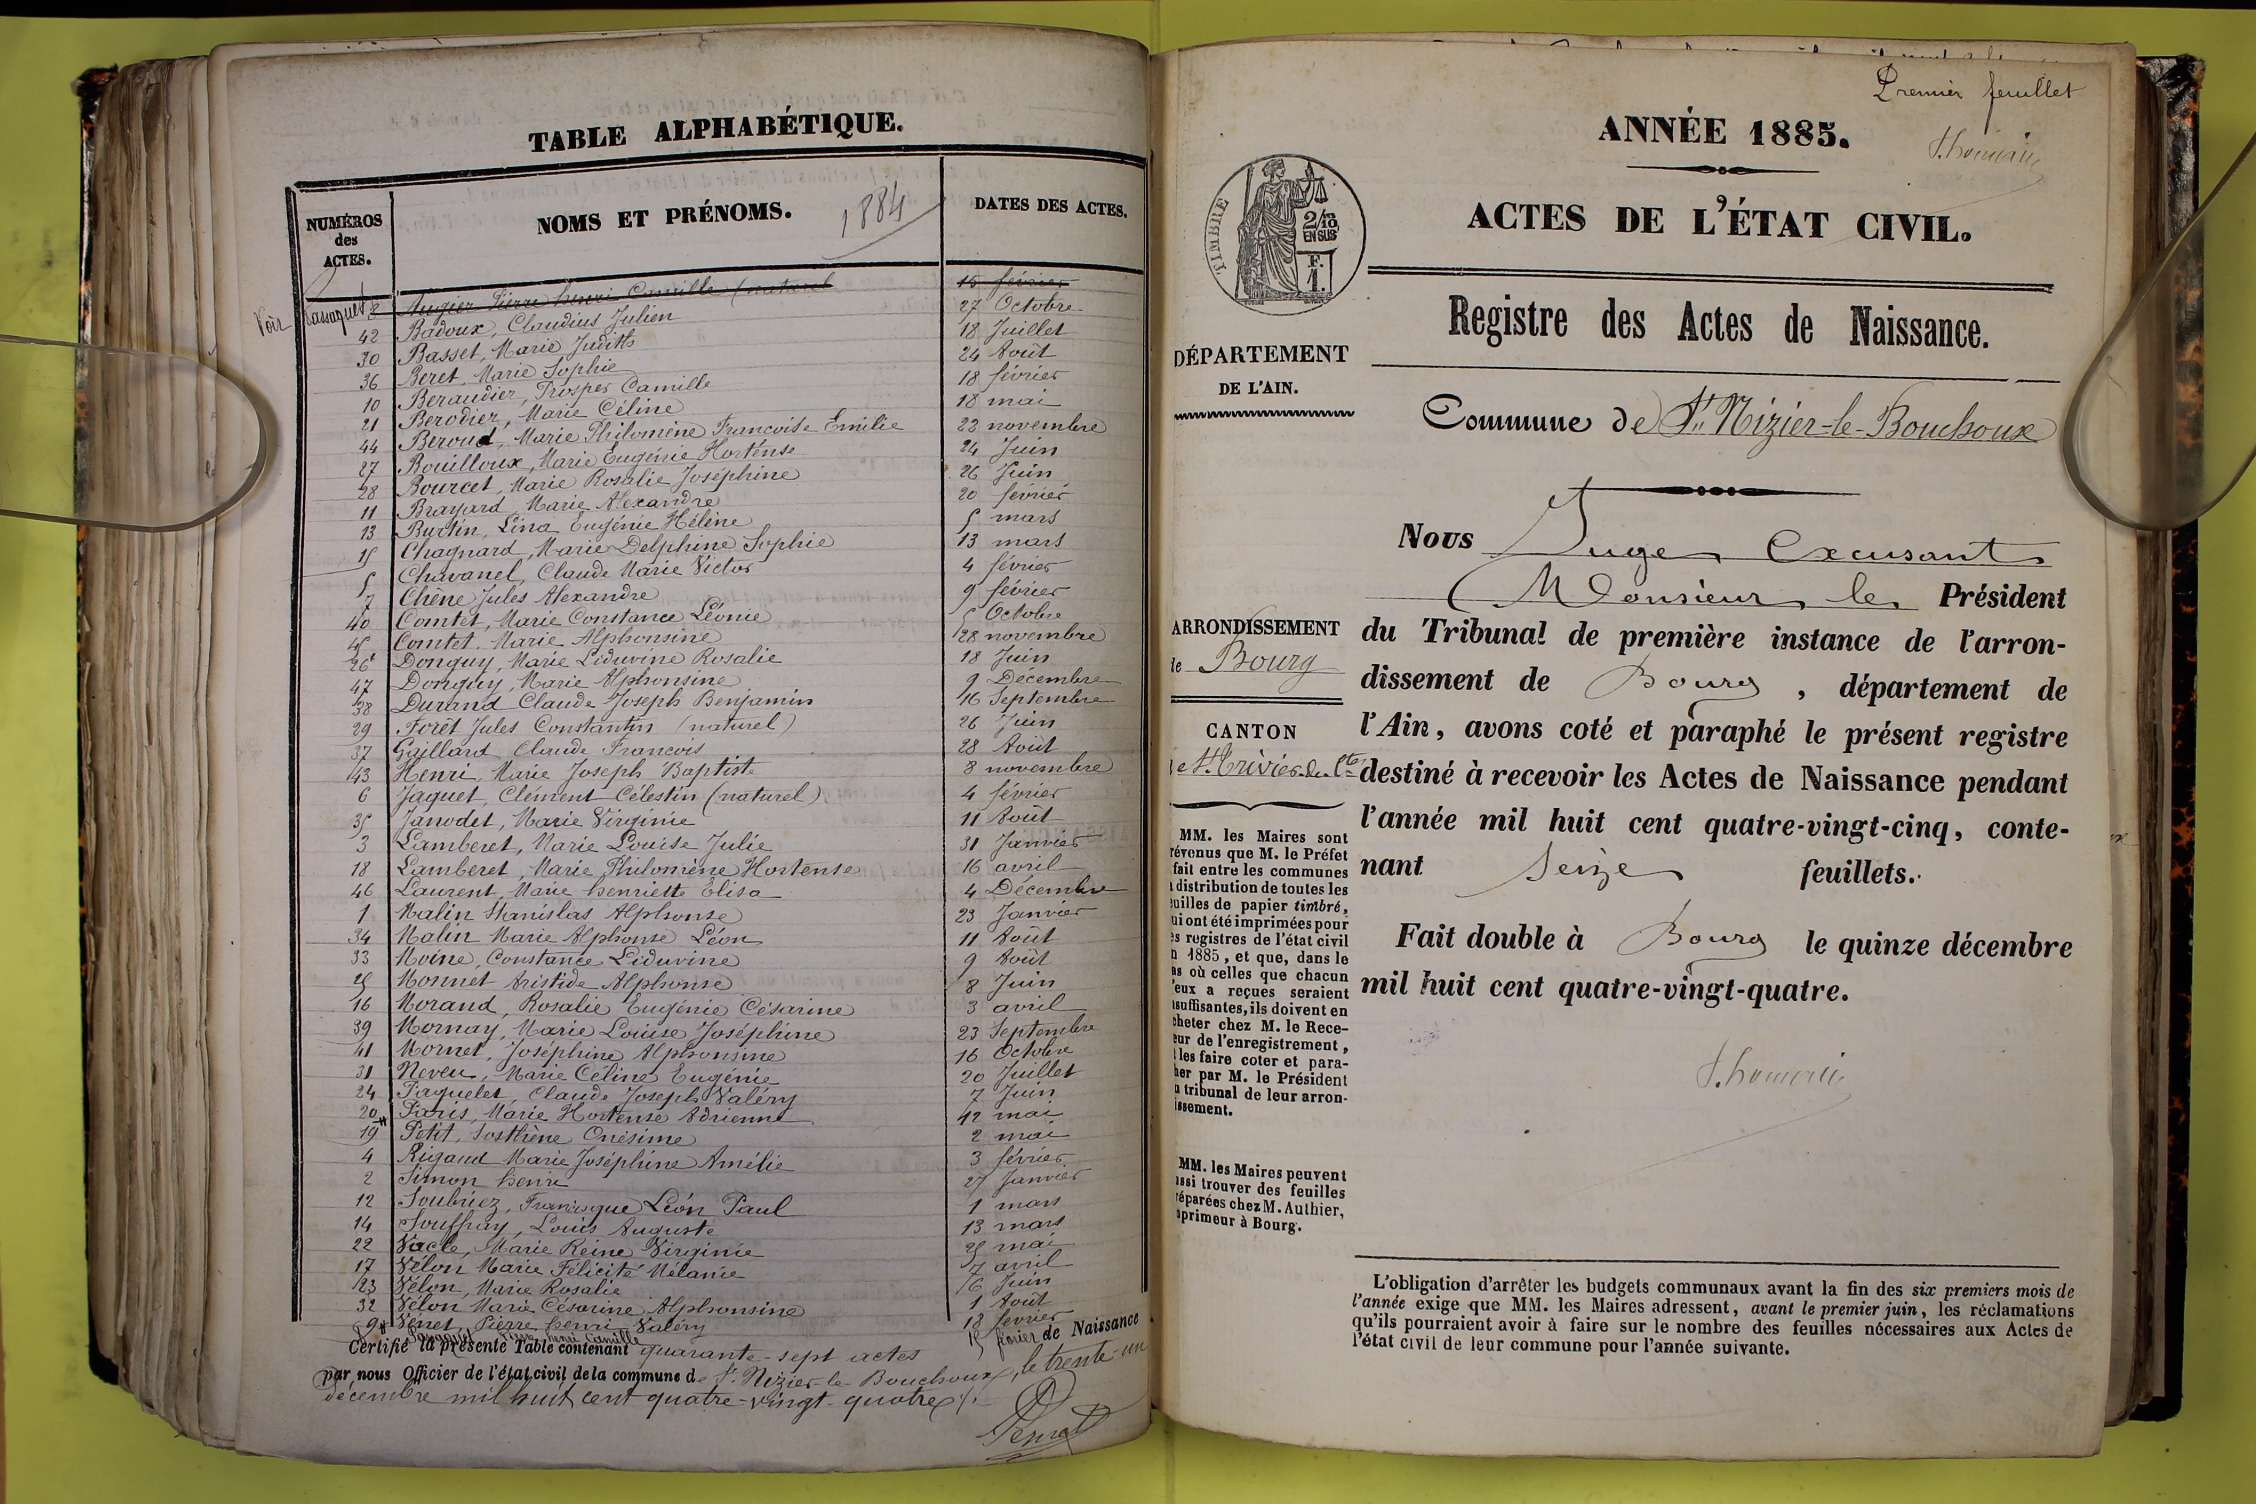 TABLE ALPHABÉTIQUE.
NUMÉROS des ACTES.
NOMS ET PRÉNOMS. 1884
DATES DES ACTES.
Voir 8 Augier Pierre henri Camille (naturel 15 février
42 Badoux, Claudius Julien 27 Octobre
30 Basset, Marie Judith 18 Juillet
36 Beret, Marie Sophie 24 Août
10 Beraudier, Prosper Camille 18 février
21 Berodier, Marie Céline 18 mai
44 Beroud, Marie Philomène Francoise Emilie 23 novembre
27 Bouilloux, Marie Eugénie Hortense 24 Juin
28 Bourcet, Marie Rosalie Joséphine 26 Juin
11 Brayard, Marie Alexandre 20 février
13 Burtin, Lina Eugénie Hélène 5 mars
15 Chagnard, Marie Delphine Sophie 13 mars
5 Chavanel, Claude Marie Victor 4 février
7 Chêne Jules Alexandre 9 février
40 Comtet, Marie Constance Léonie 5 Octobre
45 Comtet, Marie Alphonsine 28 novembre
26 Donguy, Marie Liduvine Rosalie 18 Juin
47 Donguy, Marie Alphonsine 9 Décembre
38 Durand Claude Joseph Benjamin 16 Septembre
29 Forêt Jules Constantin (naturel) 26 Juin
37 Gaillard Claude François 28 Août
43 Henri, Marie Joseph Baptiste 8 novembre
6 Jaquet, Clément Célestin (naturel) 4 février
35 Janodet, Marie Virginie 11 Août
3 Lamberet, Marie Louise Julie 31 Janvier
18 Lamberet, Marie Philomène Hortense 16 avril
46 Laurent, Marie henriette Elisa 4 Décembre
1 Malin Stanislas Alphonse 23 Janvier
34 Malin Marie Alphonse Léon 11 Août
33 Moine, Constance Liduvine 9 Août
25 Monnet Aristide Alphonse 8 Juin
16 Morand, Rosalie Eugénie Césarine 3 avril
39 Mornay, Marie Louise Joséphine 23 Septembre
41 Mornet, Joséphine Alphonsine 16 Octobre
31 Neveu, Marie Céline Eugénie 20 Juillet
24 Paquelet, Claude Joseph Valéry 7 Juin
20 Paris, Marie Hortense Adrienne 12 mai
19 Petit, Sosthène Onésime 2 mai
4 Rigaud Marie Joséphine Amélie 3 février
2 Simon henri 27 Janvier
12 Soubriez, Francisque Léon Paul 1 mars
14 Souffray, Louis Auguste 13 mars
22 Vacle, Marie Reine Virginie 25 mai
17 Vélon Marie Félicité Mélanie 7 avril
23 Vélon, Marie Rosalie 6 Juin
32 Vélon Marie Césarine Alphonsine 1 Août
9 Venet, Pierre henri Valéry 18 février
8 Pierre henri Camille 15 février
Certifié la présente Table contenant quarante-sept actes de Naissance
par nous Officier de l'état civil de la commune de St Nizier-le-Bouchoux, le trente-un
décembre mil huit cent quatre-vingt-quatre
Premier feuillet
ANNÉE 1885.
TIMBRE
2/10 EN SUS
F. 1.
ACTES DE L'ÉTAT CIVIL.
Registre des Actes de Naissance.
DÉPARTEMENT
DE L'AIN.
Commune de St Nizier-le-Bouchoux
Nous Juge Excusant
Monsieur le Président
du Tribunal de première instance de l'arron-
dissement de Bourg, département de
l'Ain, avons coté et paraphé le présent registre
destiné à recevoir les Actes de Naissance pendant
l'année mil huit cent quatre-vingt-cinq, conte-
nant Seize feuillets.
Fait double à Bourg le quinze décembre
mil huit cent quatre-vingt-quatre.
ARRONDISSEMENT
de Bourg
CANTON
de St Trivier-de-Ctes
MM. les Maires sont
révenus que M. le Préfet
fait entre les communes
a distribution de toutes les
euilles de papier timbré,
ui ont été imprimées pour
es registres de l'état civil
n 1885, et que, dans le
as où celles que chacun
'eux a reçues seraient
nsuffisantes, ils doivent en
cheter chez M. le Rece-
eur de l'enregistrement,
t les faire coter et para-
her par M. le Président
u tribunal de leur arron-
issement.
MM. les Maires peuvent
ussi trouver des feuilles
réparées chez M. Authier,
mprimeur à Bourg.
L'obligation d'arrêter les budgets communaux avant la fin des six premiers mois de
l'année exige que MM. les Maires adressent, avant le premier juin, les réclamations
qu'ils pourraient avoir à faire sur le nombre des feuilles nécessaires aux Actes de
l'état civil de leur commune pour l'année suivante.